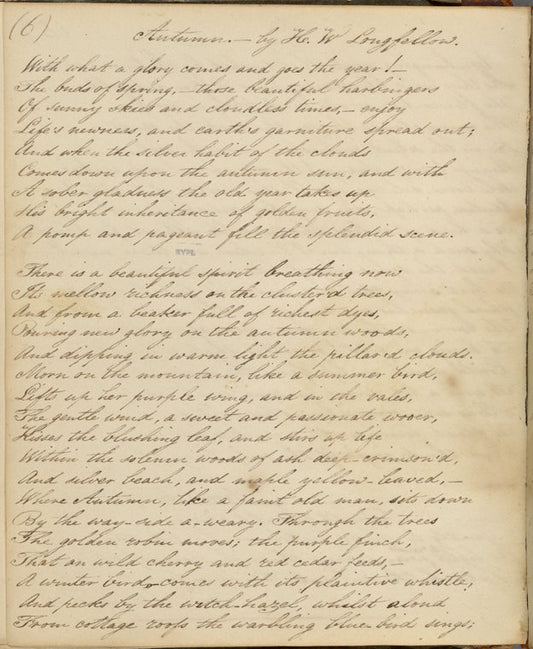 (6)
Autumn. — by H. W Longfellow.
With what a glory comes and goes the year! —
The buds of spring, — those beautiful harbingers
Of sunny skies and cloudless times, — enjoy
Life's newness, and earth's garniture spread out;
And when the silver habit of the clouds
Comes down upon the autumn sun, and with
A sober gladness the old year takes up
His bright inheritance of golden fruits,
A pomp and pageant fill the splendid scene.
There is a beautiful spirit breathing now
Its mellow richness on the cluster'd trees,
And from a beaker full of richest dyes,
Pouring new glory on the autumn woods,
And dipping in warm light the pillar'd clouds.
Morn on the mountain, like a summer bird,
Lifts up her purple wing, and in the vales,
The gentle wind, a sweet and passionate wooer,
Kisses the blushing leaf, and stirs up life
Within the solemn woods of ash deep-crimson'd,
And silver beach, and maple yellow-leaved, —
Where Autumn, like a faint old man, sits down
By the way-side a-weary. Through the trees
The golden robin moves; the purple finch,
That on wild cherry and red cedar feeds, —
A winter bird, — comes with its plaintive whistle,
And pecks by the witch-hazel, whilst aloud
From cottage roofs the warbling blue-bird sings;